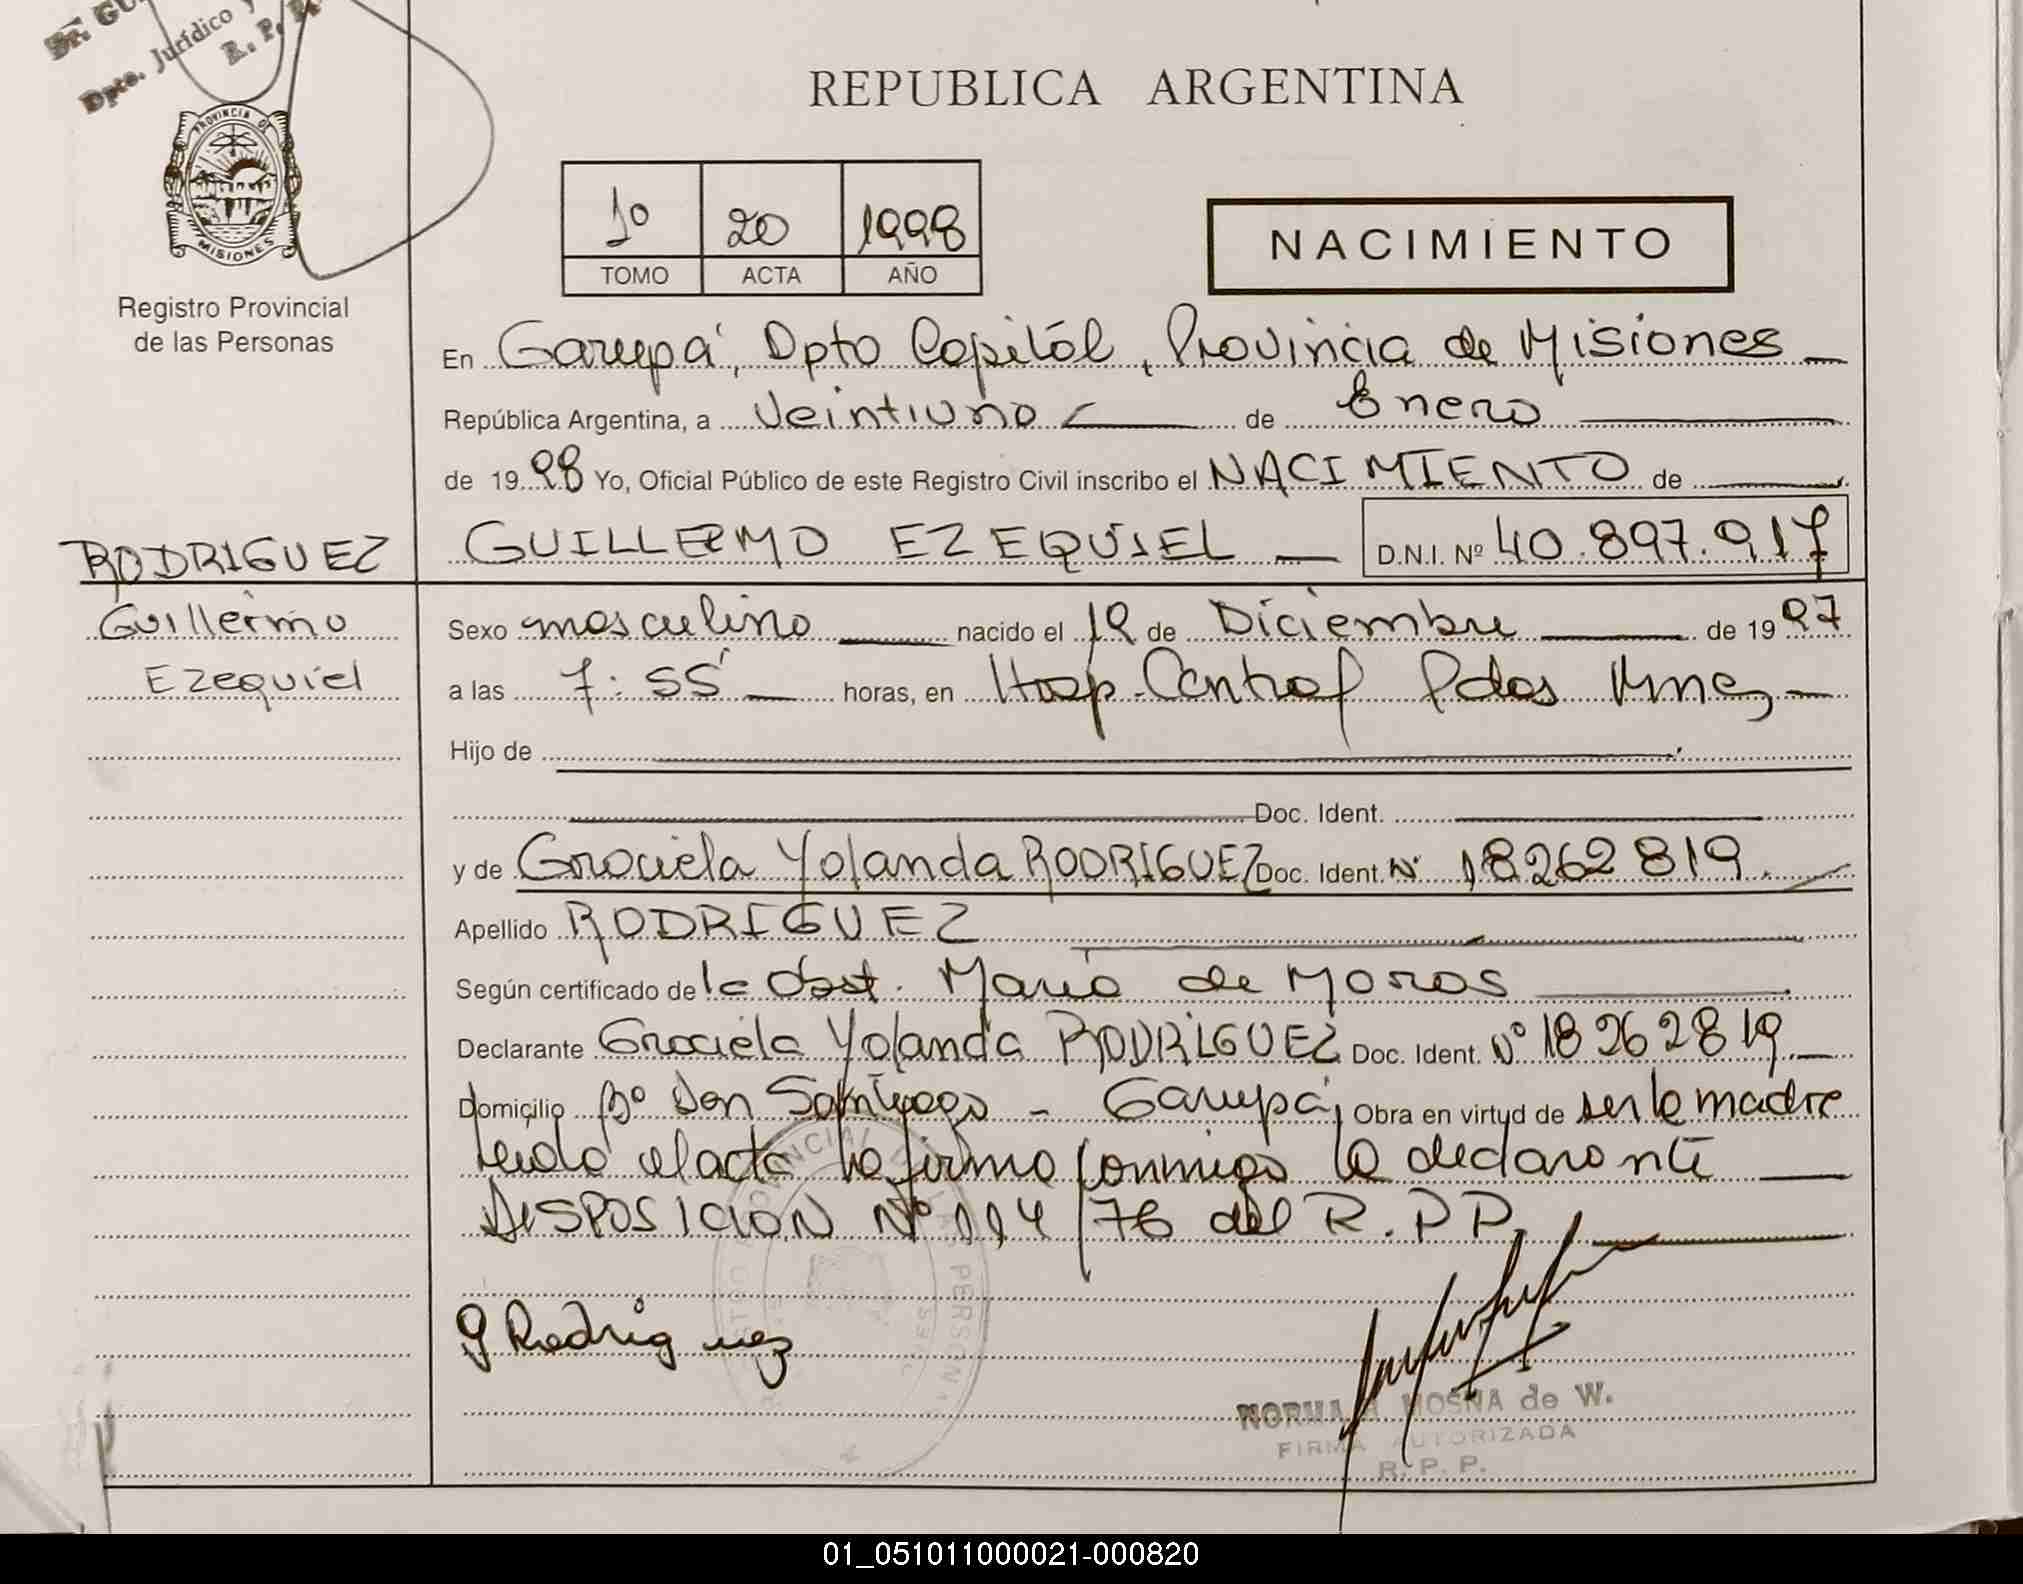 Dpto. Jurídico
R. P.
PROVINCIA DE
MISIONES
Registro Provincial
de las Personas
REPUBLICA ARGENTINA
1º 20 1998
TOMO ACTA AÑO
NACIMIENTO
En Garupá, Dpto Capital, Provincia de Misiones
República Argentina, a Veintiuno de Enero
de 1998 Yo, Oficial Público de este Registro Civil inscribo el NACIMIENTO de
RODRIGUEZ GUILLERMO EZEQUIEL D.N.I. Nº 40.897.917
Guillermo
Ezequiel
Sexo masculino nacido el 19 de Diciembre de 1997
a las 7:55 horas, en Hosp. Central Pdas Mnes
Hijo de
Doc. Ident.
y de Graciela Yolanda RODRIGUEZ Doc. Ident. Nº 18262819
Apellido RODRIGUEZ
Según certificado de la Obst. Maria de Moras
Declarante Graciela Yolanda RODRIGUEZ Doc. Ident. Nº 18262819
Domicilio Bº Don Santiago - Garupá, Obra en virtud de ser la madre
leida el acta la firma conmigo la declarante
DISPOSICION Nº 114/76 del R.P.P.
G Rodriguez
NORMA MOSNA de W.
FIRMA AUTORIZADA
R. P. P.
01_051011000021-000820